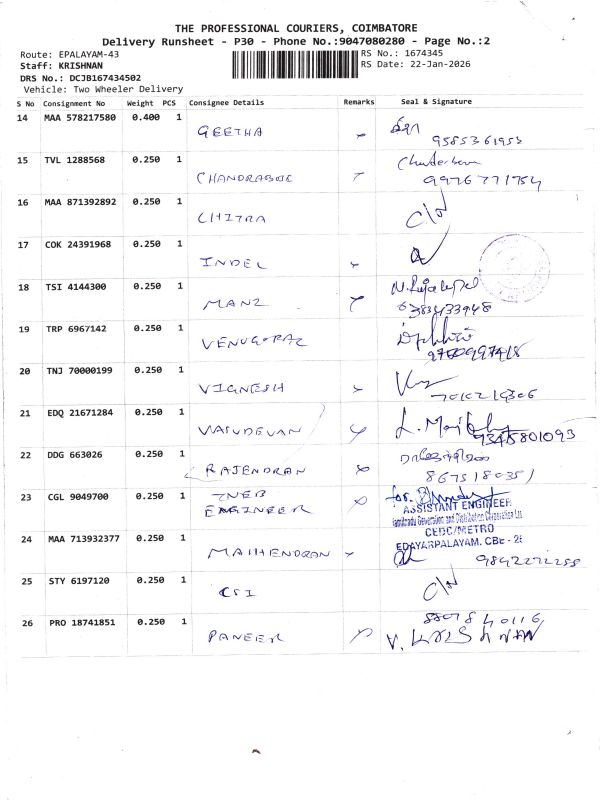 THE PROFESSIONAL COURIERS, COIMBATORE
Delivery Runsheet - P30 - Phone No.:9047080280 - Page No.:2
Route: EPALAYAM-43
RS No.: 1674345
Staff: KRISHNAN
RS Date: 22-Jan-2026
DRS No.: DCJB167434502
Vehicle: Two Wheeler Delivery
S No Consignment No Weight PCS Consignee Details Remarks Seal & Signature
14 MAA 578217580 0.400 1 GEETHA
9585361953
15 TVL 1288568 0.250 1
9976771754
16 MAA 871392892 0.250 1 CHITRA C/W
17 COK 24391968 0.250 1 INDEL
18 TSI 4144300 0.250 1 MANZ
6383433948
19 TRP 6967142 0.250 1 VENUGOPAL
20 TNJ 70000199 0.250 1 VIGNESH
21 EDQ 21671284 0.250 1 VASUDEVAN
9345801093
22 DDG 663026 0.250 1 RAJENDRAN
8675180351
23 CGL 9049700 0.250 1 TNEB
ENGINEER
for.
ASSISTANT ENGINEER
Tamilnadu Generation and Distribution Corporation Ltd
CEDC/METRO
EDAYARPALAYAM, CBE - 25
24 MAA 713932377 0.250 1 MAHENDRAN
9842272255
25 STY 6197120 0.250 1 CSI C/W
26 PRO 18741851 0.250 1 PANEER
V. KRISHNAN